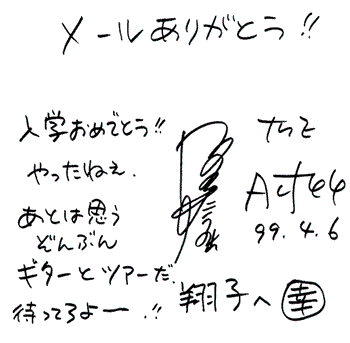 メールありがとう!!
入学おめでとう!!
やったねぇ.
あとは思う
ぞんぶん
ギターとツアーだ.
待ってるよー.!!
the
Alfee
99.4.6
翔子へ 幸